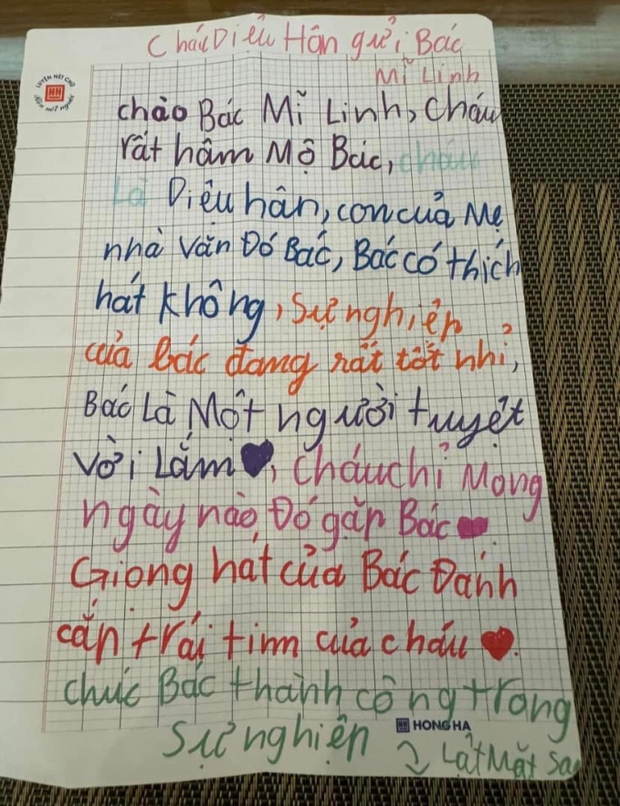 Cháu Diêu Hân gửi Bác
Mĩ Linh
LUYỆN NÉT CHỮ
RÈN NẾT NGƯỜI
HH
chào Bác Mĩ Linh, Cháu
rất hâm Mộ Bác, cháu
Là Diêu hân, con của Mẹ
nhà văn Đó Bác, Bác có thích
hát không, Sự nghiệp
của bác đang rất tốt nhỉ,
Bác Là Một người tuyệt
vời Lắm, Cháu chỉ Mong
ngày nào Đó gặp Bác
Giọng hát của Bác Đánh
cắp trái tim của cháu.
chúc Bác thành công trong
HONG HA
Sự nghiệp Lật Mặt Sau